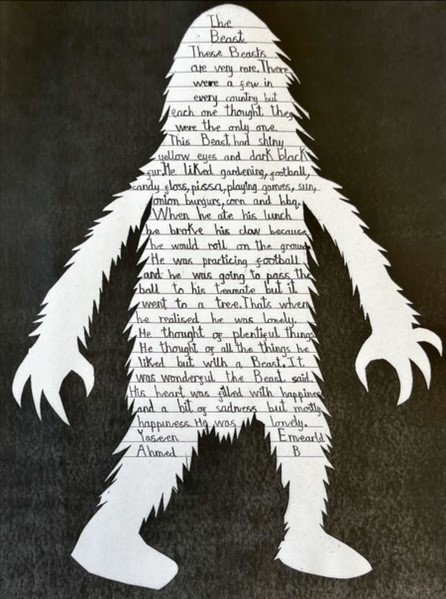 The
Beast
These Beasts
are very rare. There
were a few in
every country but
each one thought they
were the only one.
This Beast had shiny
yellow eyes and dark black
fur. He liked gardening, football,
candy floss, pissa, playing games, sun,
onion burgurs, corn and bbq.
When he ate his lunch
he broke his claw because
he would roll on the ground
He was practicing football
and he was going to pass the
ball to his teamate but it
went to a tree. Thats when
he realised he was lonely.
He thought of plentiful things
He thought of all the things he
liked but with a Beast. It
was wonderful the Beast said.
His heart was filled with happines
and a bit of sadness but mostly
happiness. He was lonely.
Yaseen Emearld
Ahmed B